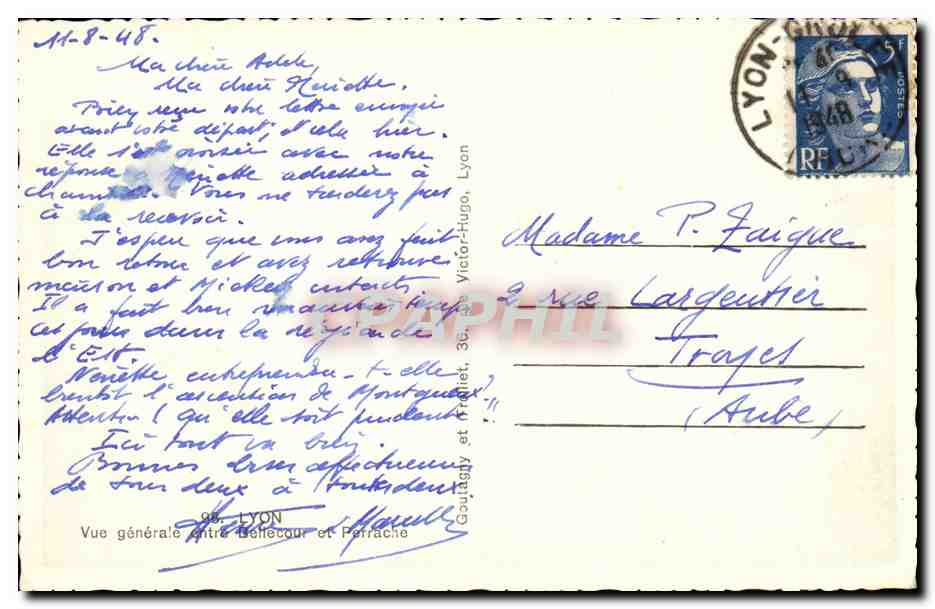 11-8-48.
Ma chère Adèle,
Ma chère
Bien reçu votre lettre envoyée
avant votre départ, et cela hier.
Elle s'est croisée avec notre
réponse adressée à
Vous ne tarderez pas
à la recevoir.
J'espère que vous avez fait
bon retour et avez retrouvé
maison et Mickey intacts
Il a fait bon temps
ces jours dans la région de
l'Est.
entreprendra-t-elle
bientôt l'ascension de Montgueux?
Attention! qu'elle soit prudente!!
Ici tout va bien.
Bonnes bises affectueuses
de tous deux à toutes deux
Marcelle
96. LYON
Vue générale entre Bellecour et Perrache
Goutagny et 36, rue Victor-Hugo, Lyon
LYON-
1948
5F
POSTES
RF
Madame P. Zaigue
2 rue Largentier
Troyes
(Aube)
CPAPHIL